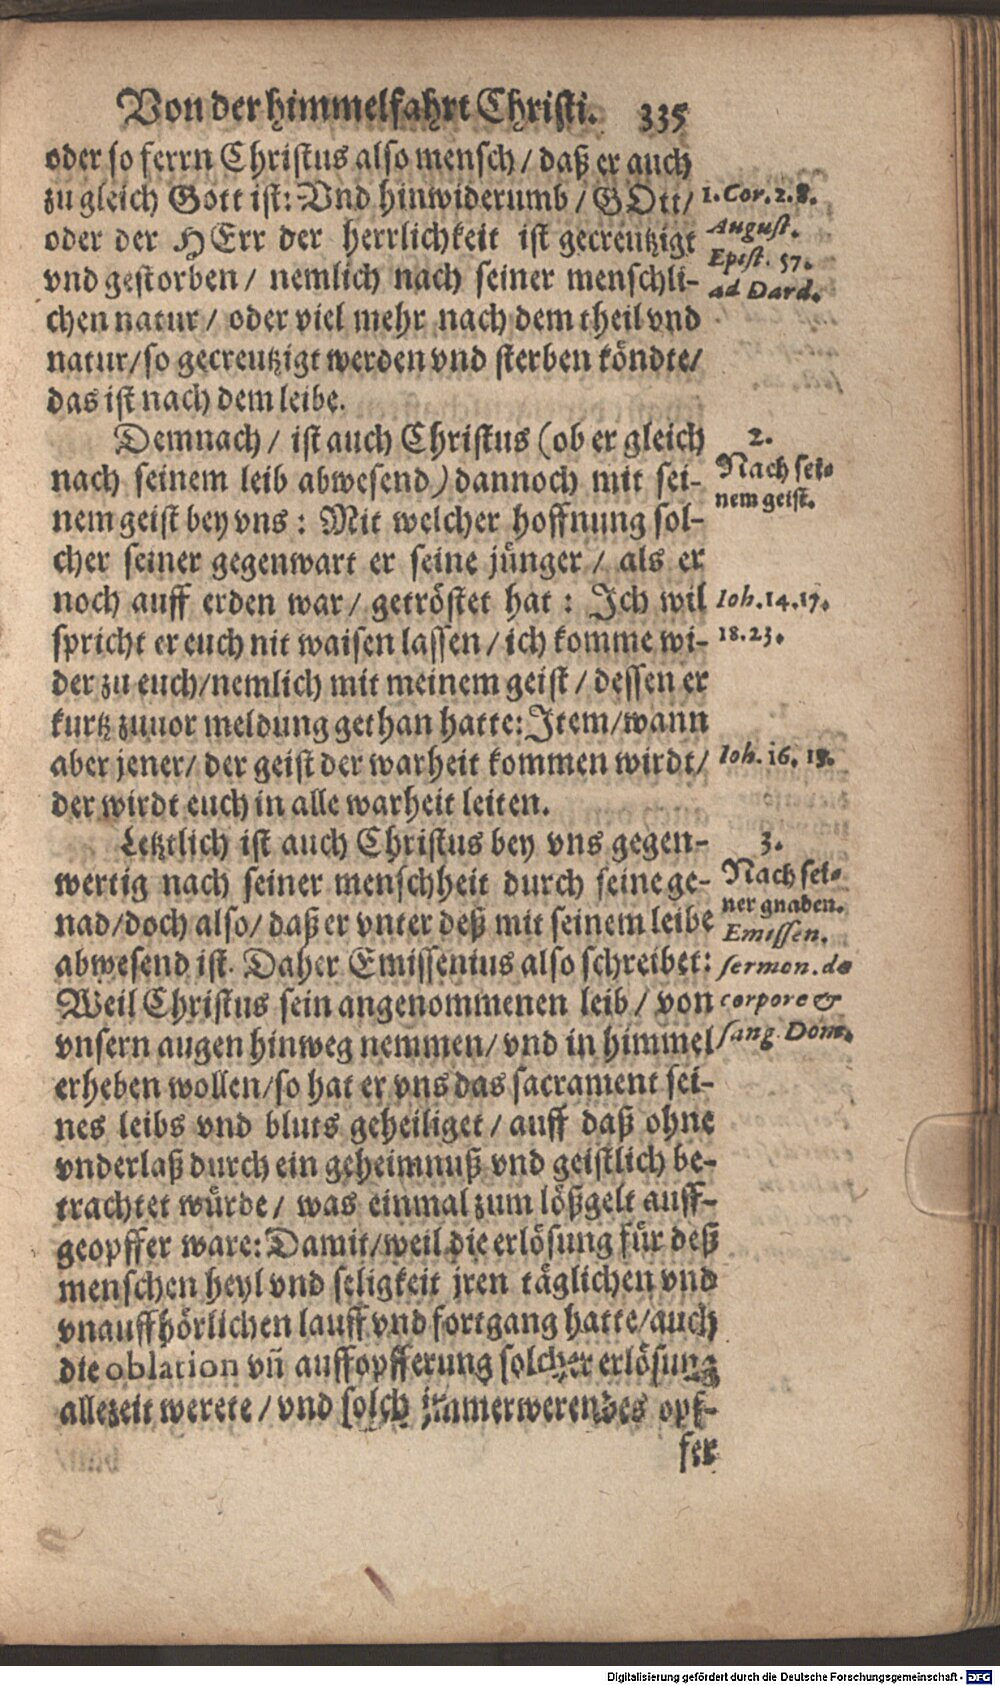 Von der himmelfahrt Christi. 335
oder so ferrn Christus also mensch / daß er auch
zu gleich Gott ist: Vnd hinwiderumb / GOtt /
oder der HErr der herrlichkeit ist gecreutzigt
vnd gestorben / nemlich nach seiner menschli-
chen natur / oder viel mehr nach dem theil vnd
natur / so gecreutzigt werden vnd sterben köndte /
das ist nach dem leibe.
1. Cor. 2. 8.
August.
Epist. 57.
ad Dard.
Demnach / ist auch Christus (ob er gleich
nach seinem leib abwesend) dannoch mit sei-
nem geist bey vns : Mit welcher hoffnung sol-
cher seiner gegenwart er seine jünger / als er
noch auff erden war / getröstet hat : Ich wil
spricht er euch nit waisen lassen / ich komme wi-
der zu euch / nemlich mit meinem geist / dessen er
kurtz zuuor meldung gethan hatte: Item / wann
aber jener / der geist der warheit kommen wirdt /
der wirdt euch in alle warheit leiten.
2.
Nach sei-
nem geist.
Ioh. 14. 17.
18. 23.
Ioh. 16. 13.
Letztlich ist auch Christus bey vns gegen-
wertig nach seiner menschheit durch seine ge-
nad / doch also / daß er vnter deß mit seinem leibe
abwesend ist. Daher Emissenius also schreibet:
Weil Christus sein angenommenen leib / von
vnsern augen hinweg nemmen / vnd in himmel
erheben wollen / so hat er vns das sacrament sei-
nes leibs vnd bluts geheiliget / auff daß ohne
vnderlaß durch ein geheimnuß vnd geistlich be-
trachtet würde / was einmal zum lößgelt auff-
geopffer ware: Damit / weil die erlösung für deß
menschen heyl vnd seligkeit jren täglichen vnd
vnauffhörlichen lauff vnd fortgang hatte / auch
die oblation vñ auffopfferung solcher erlösung
allezeit werete / vnd solch immerwerendes opf-
fer
3.
Nach sei-
ner gnaden.
Emissen.
sermon. de
corpore &
sang. Dom.
Digitalisierung gefördert durch die Deutsche Forschungsgemeinschaft - DFG